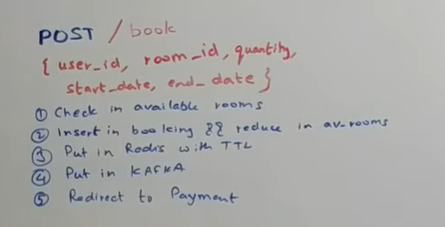 POST / book
{ user_id, room_id, quantity,
start_date, end_date }
① Check in available rooms
② Insert in booking && reduce in av_rooms
③ Put in Redis with TTL
④ Put in KAFKA
⑤ Redirect to Payment